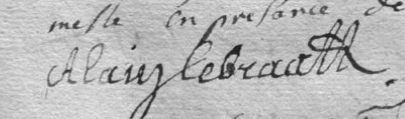 mesle en presance de
Alain lebraatk